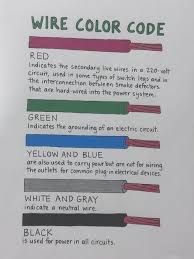 WIRE COLOR CODE
RED
Indicates the secondary live wires in a 220-volt
circuit, used in some types of switch legs and in
the interconnection between smoke detectors
That are hard-wired into the power system.
GREEN
Indicates the grounding of an electric circuit.
YELLOW AND BLUE
are also used to carry pour but are not for wiring
The outlets for common plug in electrical devices.
WHITE AND GRAY
indicate a neutral wire.
BLACK
is used for power in all circuits.